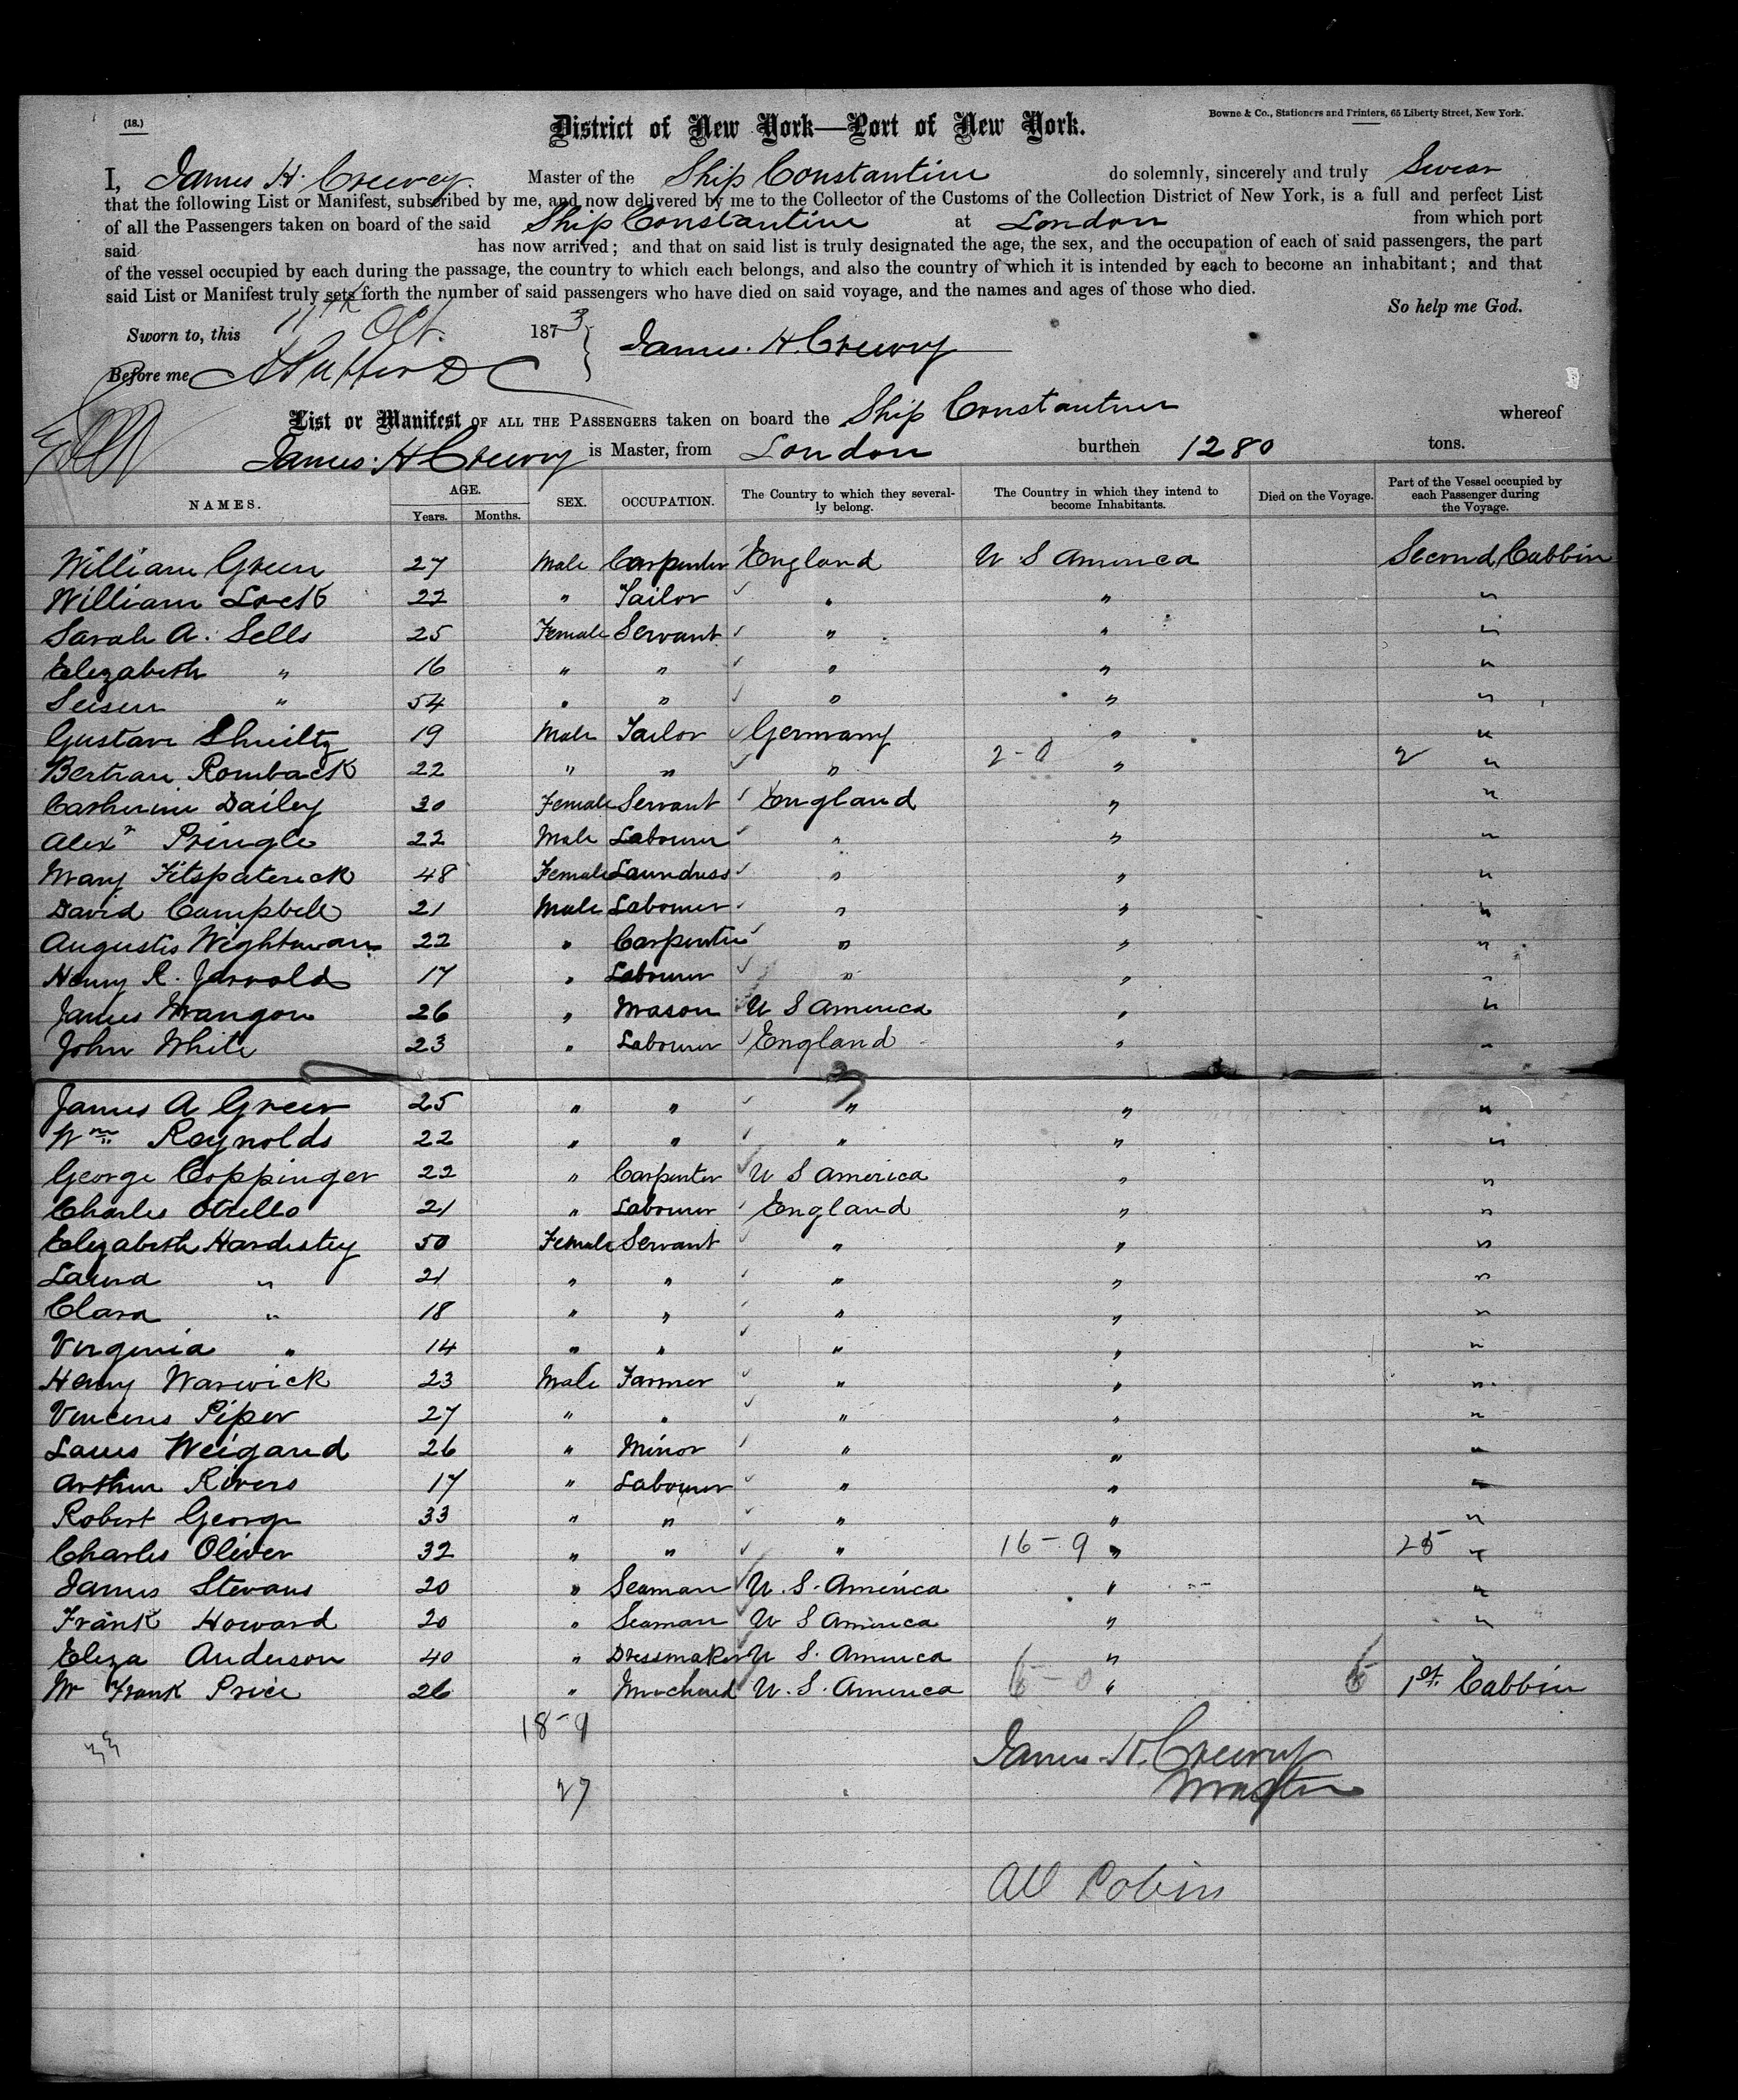 (18.)
District of New York—Port of New York.
Bowne & Co., Stationers and Printers, 65 Liberty Street, New York.
I, James H. Creevey. Master of the Ship Constantine do solemnly, sincerely and truly Swear
that the following List or Manifest, subscribed by me, and now delivered by me to the Collector of the Customs of the Collection District of New York, is a full and perfect List
of all the Passengers taken on board of the said Ship Constantine at London from which port
said has now arrived; and that on said list is truly designated the age, the sex, and the occupation of each of said passengers, the part
of the vessel occupied by each during the passage, the country to which each belongs, and also the country of which it is intended by each to become an inhabitant; and that
said List or Manifest truly sets forth the number of said passengers who have died on said voyage, and the names and ages of those who died.
So help me God.
Sworn to, this 11th Oct. 1873
James. H. Creevey
Before me
List or Manifest OF ALL THE PASSENGERS taken on board the Ship Constantine whereof
James. H Creevey is Master, from London burthen 1280 tons.
NAMES. AGE. Years. Months. SEX. OCCUPATION. The Country to which they severally belong. The Country in which they intend to become Inhabitants. Died on the Voyage. Part of the Vessel occupied by each Passenger during the Voyage.
William Green 27 Male Carpenter England U S America Second Cabbin
William Lock 22 " Tailor " " "
Sarah A. Sells 25 Female Servant " " "
Elizabeth " 16 " " " " "
" 54 " " " " "
Gustave Shuiltz 19 Male Tailor Germany " "
Bertran Romback 22 " " " 2-0 " 2 "
Catherine Dailey 30 Female Servant England " "
Alexr Pringle 22 Male Labourer " " "
Mary Fitspaterick 48 Female Laundress " " "
David Campbell 21 Male Labourer " " "
Augustis Wightman 22 " Carpenter " " "
Henry R. Jarrold 17 " Labourer " " "
James Mangon 26 " Mason U S America " "
John White 23 " Labourer England " "
James A Green 25 " " " " "
Wm Reynolds 22 " " " " "
George Coppinger 22 " Carpenter U S America " "
Charles 21 " Labourer England " "
Elizabeth Hardistey 50 Female Servant " " "
Laura " 21 " " " " "
Clara " 18 " " " " "
Virginia " 14 " " " " "
Henry Warwick 23 Male Farmer " " "
Vincens Piper 27 " " " " "
Louis Weigand 26 " Minor " " "
Arthur Rivers 17 " Labourer " " "
Robert George 33 " " " " "
Charles Oliver 32 " " " 16-9 " 25 "
James Stevans 20 " Seaman U. S. America " "
Frank Howard 20 " Seaman U S America " "
Eliza Anderson 40 " Dressmaker U S. America " "
Mr Frank Price 26 " Merchend U. S. America 6-0 " 6 1st Cabbin
18-9
33
James. H. Creevey
27
Master
All Cabin